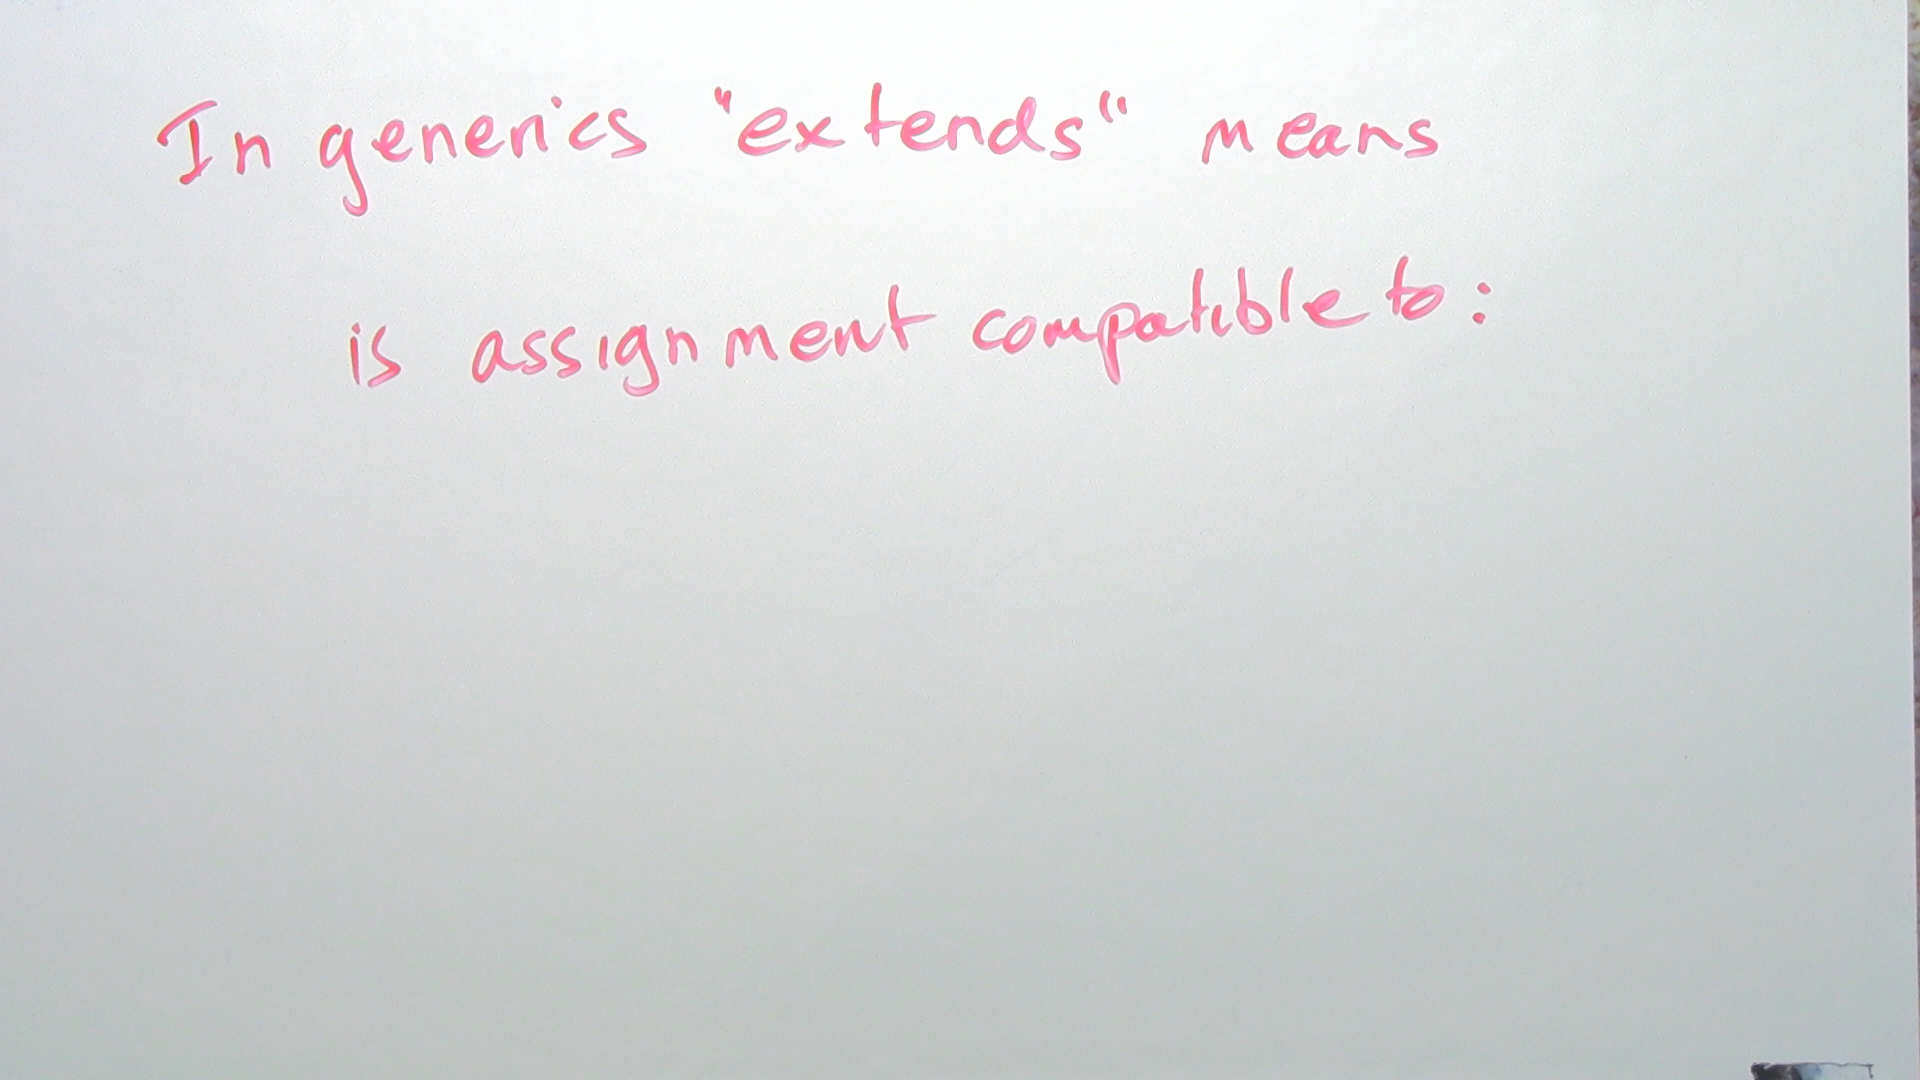 In generics "extends" means
is assignment compatible to: